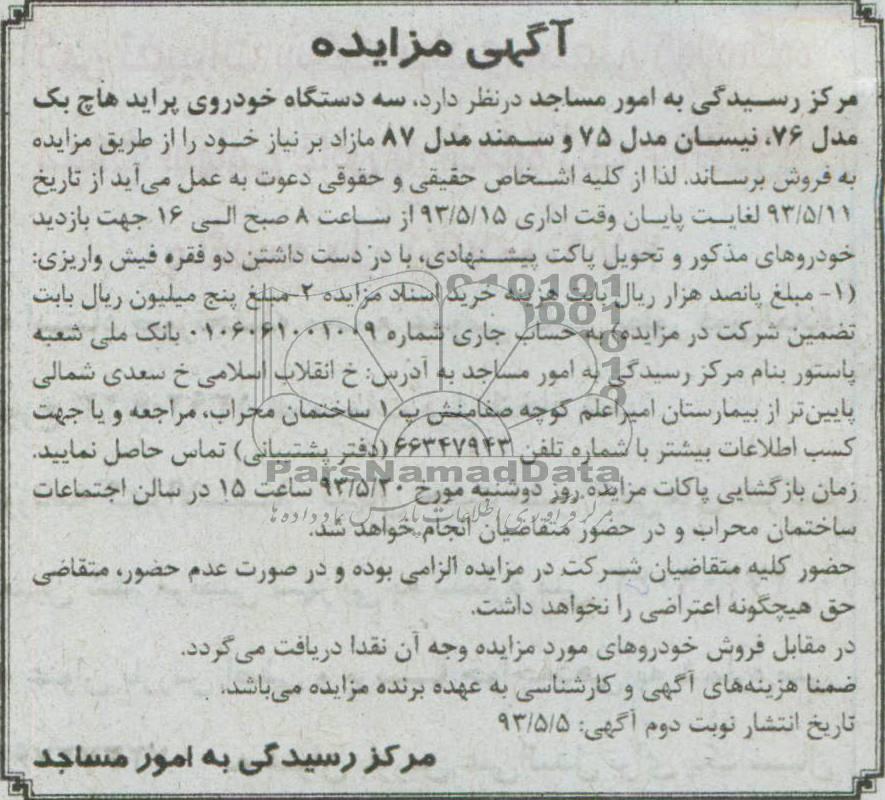 آگهی مزایده
مرکز رسیدگی به امور مساجد درنظر دارد، سه دستگاه خودروی پراید هاچ بک
مدل ۷۶، نیسان مدل ۷۵ و سمند مدل ۸۷ مازاد بر نیاز خود را از طریق مزایده
به فروش برساند. لذا از کلیه اشخاص حقیقی و حقوقی دعوت به عمل می‌آید از تاریخ
۹۳/۵/۱۱ لغایت پایان وقت اداری ۹۳/۵/۱۵ از ساعت ۸ صبح الی ۱۶ جهت بازدید
خودروهای مذکور و تحویل پاکت پیشنهادی، با در دست داشتن دو فقره فیش واریزی:
(۱- مبلغ پانصد هزار ریال بابت هزینه خرید اسناد مزایده ۲- مبلغ پنج میلیون ریال بابت
تضمین شرکت در مزایده) به حساب جاری شماره ۰۱۰۶۰۶۱۰۰۱۰۰۹ بانک ملی شعبه
پاستور بنام مرکز رسیدگی به امور مساجد به آدرس: خ انقلاب اسلامی خ سعدی شمالی
پایین‌تر از بیمارستان امیراعلم کوچه صفامنش پ ۱ ساختمان محراب، مراجعه و یا جهت
کسب اطلاعات بیشتر با شماره تلفن ۶۶۳۴۷۹۴۳ (دفتر پشتیبانی) تماس حاصل نمایید.
ParsNamadData
زمان بازگشایی پاکات مزایده روز دوشنبه مورخ ۹۳/۵/۲۰ ساعت ۱۵ در سالن اجتماعات
ساختمان محراب و در حضور متقاضیان انجام خواهد شد.
حضور کلیه متقاضیان شرکت در مزایده الزامی بوده و در صورت عدم حضور، متقاضی
حق هیچگونه اعتراضی را نخواهد داشت.
در مقابل فروش خودروهای مورد مزایده وجه آن نقدا دریافت می‌گردد.
ضمنا هزینه‌های آگهی و کارشناسی به عهده برنده مزایده می‌باشد.
تاریخ انتشار نوبت دوم آگهی: ۹۳/۵/۵
مرکز رسیدگی به امور مساجد